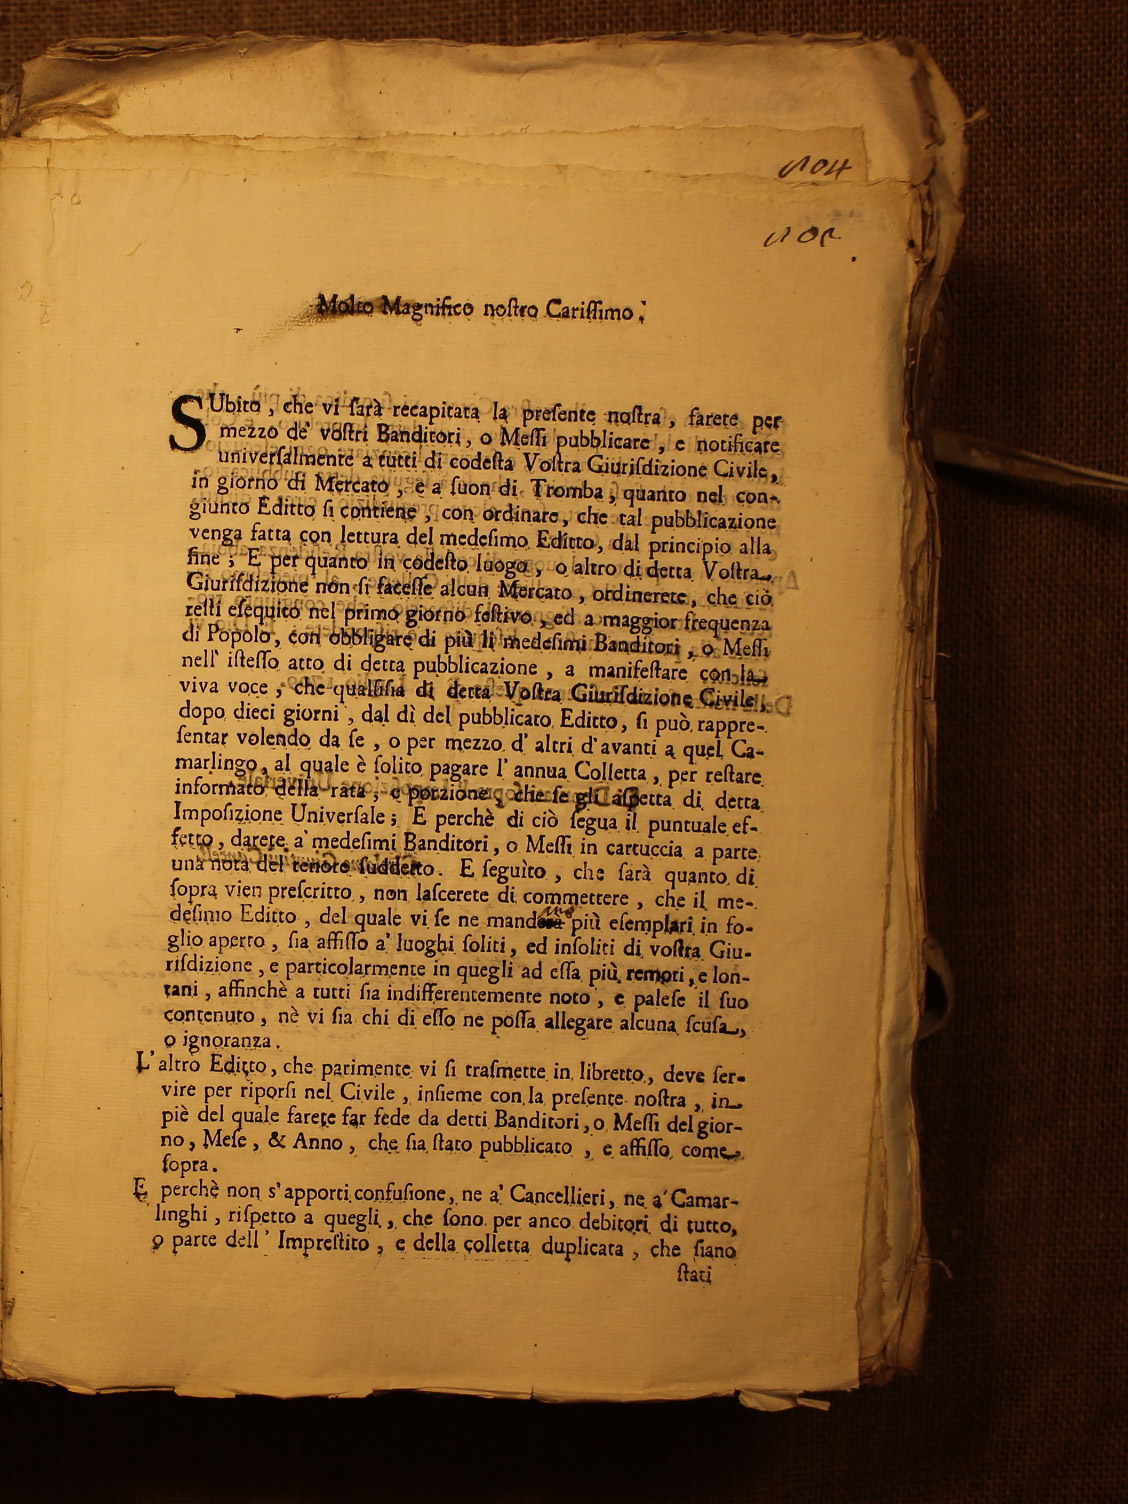 Molto Magnifico noſtro Cariſſimo.
SUbito, che vi ſarà recapitata la preſente noſtra, farete per
mezzo de' voſtri Banditori, o Meſſi pubblicare, e notificare
univerſalmente a tutti di codeſta Voſtra Giuriſdizione Civile,
in giorno di Mercato, e a ſuon di Tromba, quanto nel con-
giunto Editto ſi contiene, con ordinare, che tal pubblicazione
venga fatta con lettura del medeſimo Editto, dal principio alla
fine; E per quanto in codeſto luogo, o altro di detta Voſtra
Giuriſdizione non ſi faceſſe alcun Mercato, ordinerete, che ciò
reſti eſequito nel primo giorno feſtivo, ed a maggior frequenza
di Popolo, con obbligare di più li medeſimi Banditori, o Meſſi
nell' iſteſſo atto di detta pubblicazione, a manifeſtare con la
viva voce, che qualſiſia di detta Voſtra Giuriſdizione Civile,
dopo dieci giorni, dal dì del pubblicato Editto, ſi può rappre-
ſentar volendo da ſe, o per mezzo d' altri d'avanti a quel Ca-
marlingo, al quale è ſolito pagare l' annua Colletta, per reſtare
informato della rata, e porzione, che ſe gli aſpetta di detta
Impoſizione Univerſale; E perchè di ciò ſegua il puntuale ef-
fetto, darete a' medeſimi Banditori, o Meſſi in cartuccia a parte
una nota del tenore ſuddetto. E ſeguito, che ſarà quanto di
ſopra vien preſcritto, non laſcerete di commettere, che il me-
deſimo Editto, del quale vi ſe ne mand più eſemplari in fo-
glio aperto, ſia affiſſo a' luoghi ſoliti, ed inſoliti di voſtra Giu-
riſdizione, e particolarmente in quegli ad eſſa più remoti, e lon-
tani, affinchè a tutti ſia indifferentemente noto, e paleſe il ſuo
contenuto, nè vi ſia chi di eſſo ne poſſa allegare alcuna ſcuſa,
o ignoranza.
L'altro Editto, che parimente vi ſi traſmette in libretto, deve ſer-
vire per riporſi nel Civile, inſieme con la preſente noſtra, in
piè del quale farete far fede da detti Banditori, o Meſſi del gior-
no, Meſe, & Anno, che ſia ſtato pubblicato, e affiſſo come
ſopra.
E perchè non s'apporti confuſione, ne a' Cancellieri, ne a' Camar-
linghi, riſpetto a quegli, che ſono per anco debitori di tutto,
o parte dell' Impreſtito, e della colletta duplicata, che ſiano
ſtati